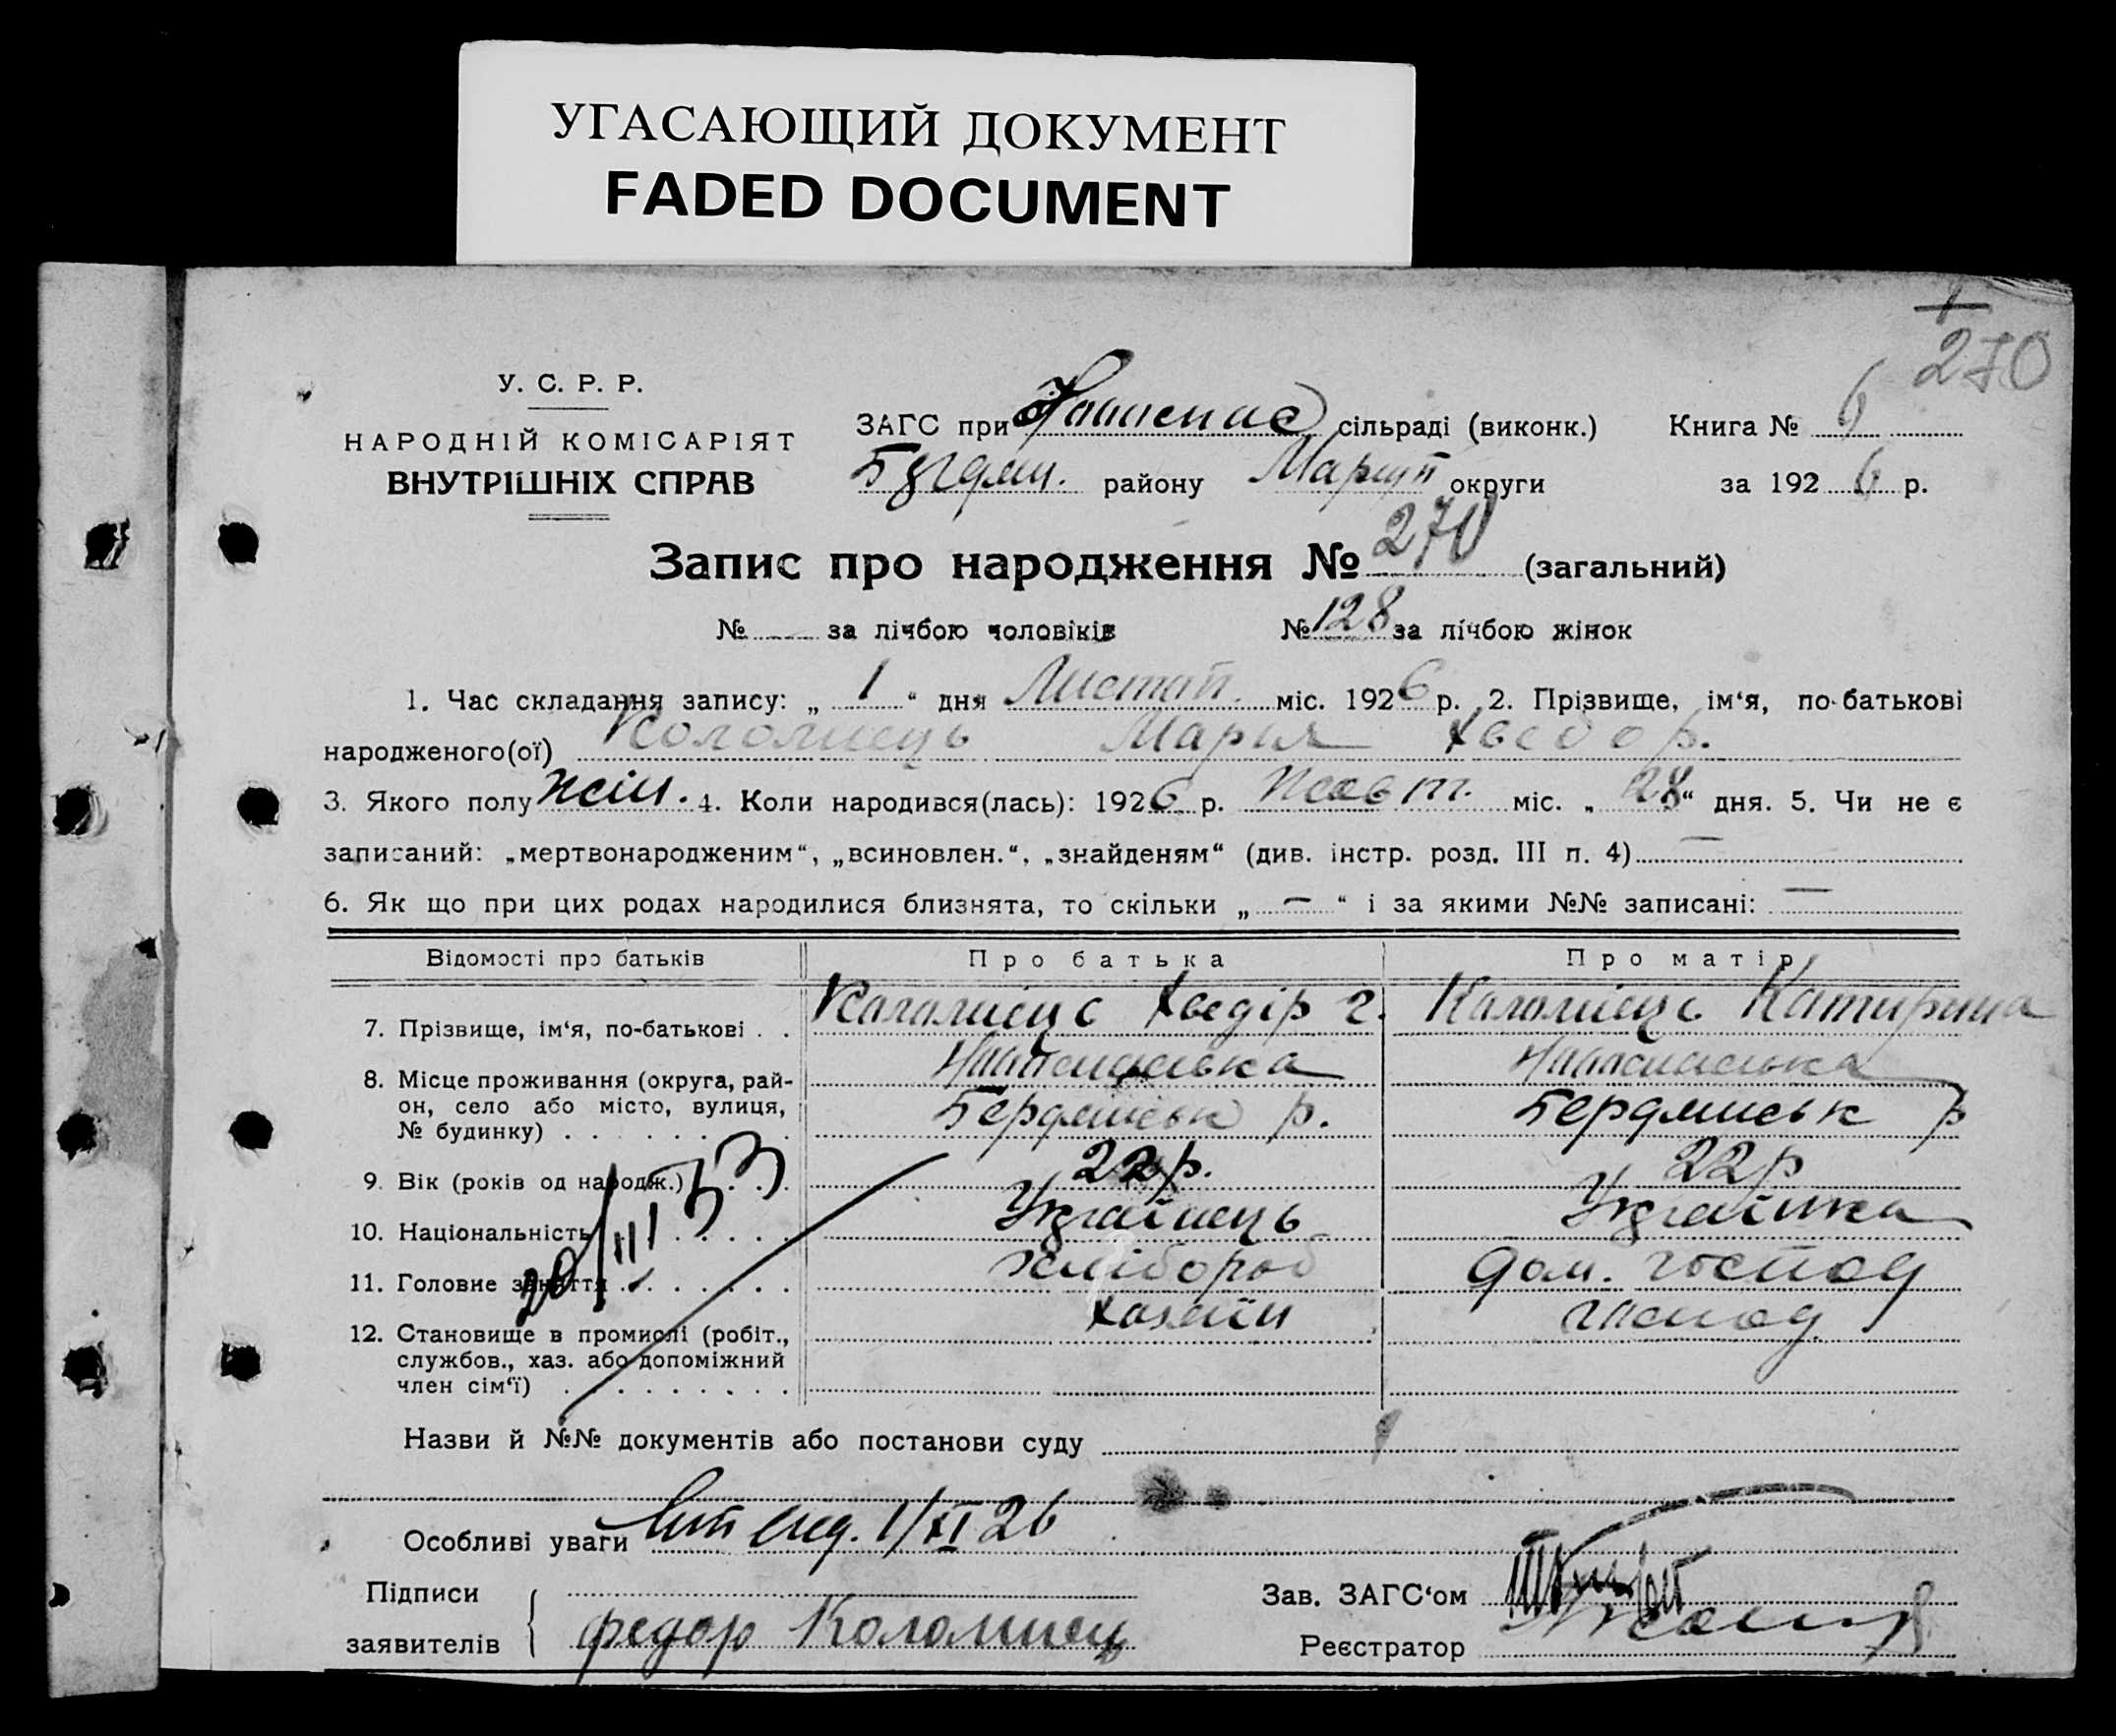 УГАСАЮЩИЙ ДОКУМЕНТ
FADED DOCUMENT
270
У. С. Р. Р.
НАРОДНІЙ КОМІСАРІЯТ
ВНУТРІШНІХ СПРАВ
ЗАГС при сільраді (виконк.) Книга № 6
району Маріуп округи за 192 6 р.
Запис про народження № 270 (загальний)
№ за лічбою чоловіків № 128 за лічбою жінок
1. Час складання запису: „ 1 “ дня Листоп. міс. 1926 р. 2. Прізвище, ім‘я, по-батькові
народженого(ої) Коломиець Мария Хведор.
3. Якого полу жін. 4. Коли народився(лась): 1926 р. Жовт. міс. „ 28 “ дня. 5. Чи не є
записаний: „мертвонародженим“, „всиновлен.“, „знайденям“ (див. інстр. розд. III п. 4) —
6. Як що при цих родах народилися близнята, то скільки „ — “ і за якими №№ записані: —
Відомості про батьків Про батька Про матір
7. Прізвище, ім‘я, по-батькові . . Коломиець Хведір г. Коломиець Катирина
8. Місце проживання (округа, рай-
он, село або місто, вулиця, Бердянськ р. Бердянськ р
№ будинку)
9. Вік (років од народж.) 22 р. 22 р
10. Національність Українець Українка
11. Головне заняття Хлібороб дом. господ
20/III 53
12. Становище в промислі (робіт., Хазяїн
службов., хаз. або допоміжний
член сім‘ї)
Назви й №№ документів або постанови суду
Особливі уваги 1/XI 26
Підписи Зав. ЗАГС‘ом
заявителів федор Коломиец Реєстратор